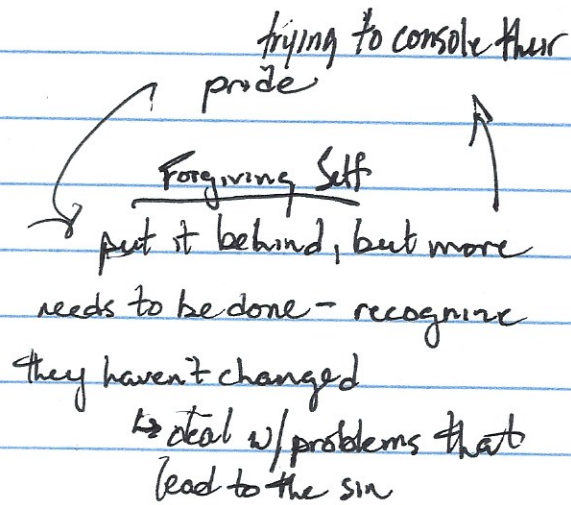 trying to console their
pride
Forgiving Self
put it behind, but more
needs to be done - recognize
they haven't changed
↳ deal w/ problems that
lead to the sin